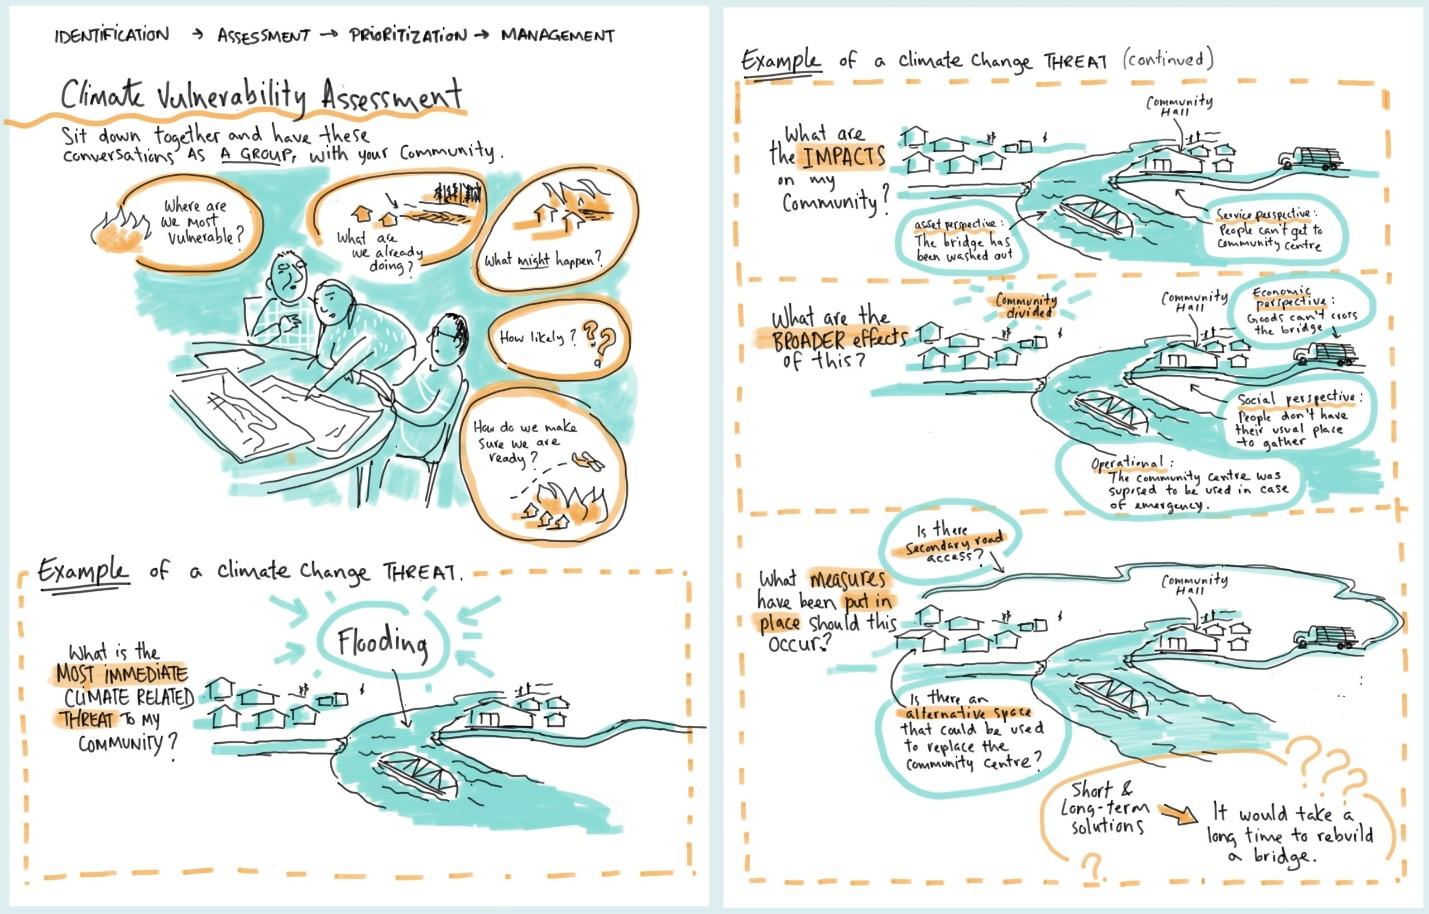 IDENTIFICATION → ASSESSMENT → PRIORITIZATION → MANAGEMENT
Climate Vulnerability Assessment
Sit down together and have these
conversations AS A GROUP, with your Community.
Where are
we most
vulnerable?
What are
we already
doing?
What might happen?
How likely? ??
How do we make
sure we are
ready?
Example of a climate change THREAT.
Flooding
What is the
MOST IMMEDIATE
CLIMATE RELATED
THREAT to my
COMMUNITY?
Example of a climate change THREAT (continued)
What are
the IMPACTS
on my
Community?
Community
Hall
asset perspective:
The bridge has
been washed out
Service perspective:
People can't get to
community centre
What are the
BROADER effects
of this?
Community
divided
Community
Hall
Economic
perspective:
Goods can't cross
the bridge
Social perspective:
People don't have
their usual place
to gather
Operational:
The community centre was
suposed to be used in case
of emergency.
Is there
secondary road
access?
What measures
have been put in
place should this
occur?
Community
Hall
Is there an
alternative space
that could be used
to replace the
community centre?
Short &
Long-term
solutions
→ It would take a
long time to rebuild
a bridge.
???
?